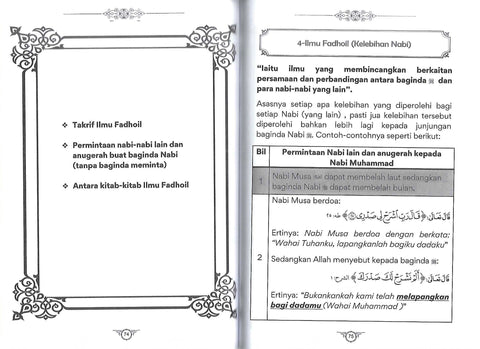 ❖ Takrif Ilmu Fadhoil
❖ Permintaan nabi-nabi lain dan
anugerah buat baginda Nabi
(tanpa baginda meminta)
❖ Antara kitab-kitab Ilmu Fadhoil
74
4-Ilmu Fadhoil (Kelebihan Nabi)
"Iaitu ilmu yang membincangkan berkaitan
persamaan dan perbandingan antara baginda ﷺ dan
para nabi-nabi yang lain".
Asasnya setiap apa kelebihan yang diperolehi bagi
setiap Nabi (yang lain) , pasti jua kelebihan tersebut
diperolehi bahkan lebih lagi kepada junjungan
baginda Nabi ﷺ. Contoh-contohnya seperti berikut:
Bil Permintaan Nabi lain dan anugerah kepada
Nabi Muhammad
1 Nabi Musa dapat membelah laut sedangkan
baginda Nabi ﷺ dapat membelah bulan.
Nabi Musa berdoa:
قَالَ تَعَالَى ﴿قَالَ رَبِّ اشْرَحْ لِي صَدْرِي﴾ طه: ٢٥
Ertinya: Nabi Musa berdoa dengan berkata:
"Wahai Tuhanku, lapangkanlah bagiku dadaku"
2 Sedangkan Allah menyebut kepada baginda ﷺ:
قَالَ تَعَالَى ﴿أَلَمْ نَشْرَحْ لَكَ صَدْرَكَ﴾ الشرح: ١
Ertinya: "Bukankankah kami telah melapangkan
bagi dadamu (Wahai Muhammad )"
75